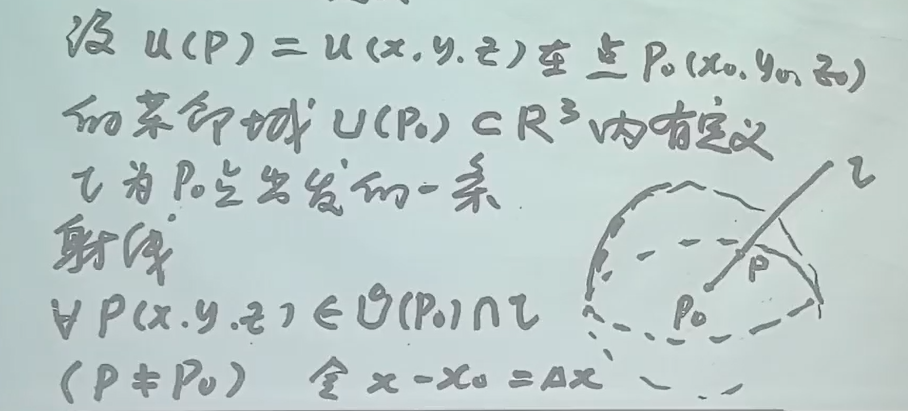 设 u(P) = u(x.y.z) 在点 P₀(x₀.y₀,z₀)
的某邻域 U(P₀)⊂R³ 内有定义
l 为 P₀点出发的一条
射线
∀ P(x.y.z) ∈ U(P₀)∩l
(P≠P₀) 令 x-x₀=Δx
l
P
P₀